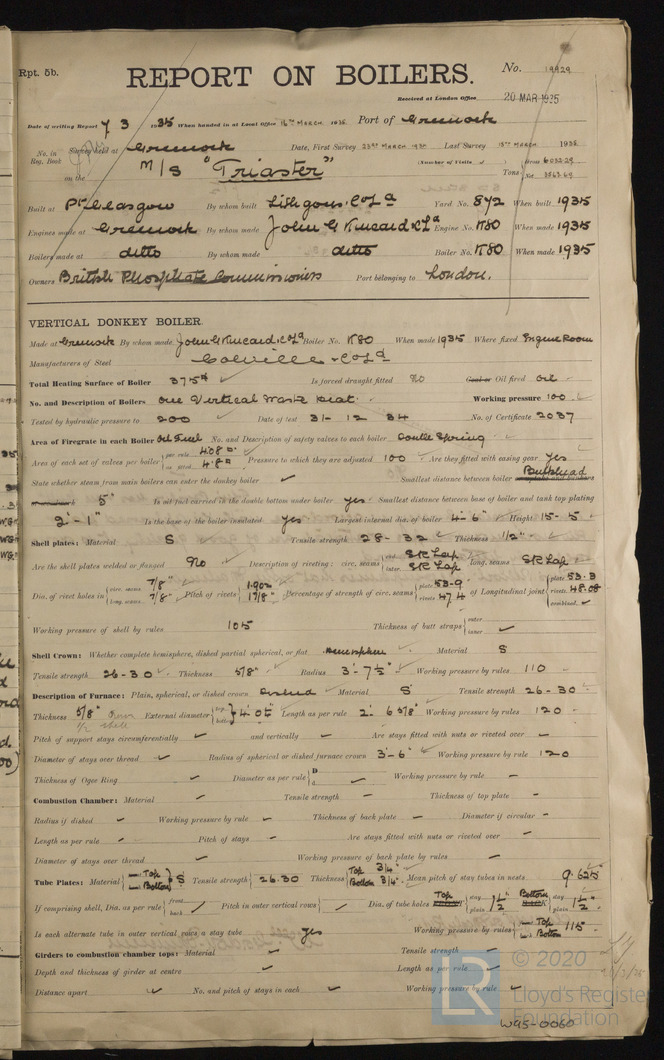 Rpt. 5b.
REPORT ON BOILERS.
No. 19929
Received at London Office 20 MAR 1935
Date of writing Report 7 3 1935 When handed in at Local Office 16TH MARCH 1935 Port of Greenock
No. in Reg. Book Survey held at Greenock Date, First Survey Last Survey 15TH MARCH 1935
(Number of Visits )
on the M/S "Triaster" Tons Gross 6032.29 Net 3563.69
Built at Pt Glasgow By whom built Lithgows Co Ld Yard No. 872 When built 1935
Engines made at Greenock By whom made John G Kincaid & Co Ld Engine No. K80 When made 1935
Boilers made at ditto By whom made ditto Boiler No. K80 When made 1935
Owners British Phosphate Commissioners Port belonging to London.
VERTICAL DONKEY BOILER.
Made at Greenock By whom made John G Kincaid & Co Ld Boiler No. K80 When made 1935 Where fixed Engine Room
Manufacturers of Steel Colvilles Ld
Total Heating Surface of Boiler 375 Is forced draught fitted No Coal or Oil fired Oil
No. and Description of Boilers One Vertical Waste Heat. Working pressure 100
Tested by hydraulic pressure to 200 Date of test 31-12-34 No. of Certificate 2037
Area of Firegrate in each Boiler Oil Fuel No. and Description of safety valves to each boiler Double Spring
Area of each set of valves per boiler per rule 4.08 as fitted 4.8 Pressure to which they are adjusted 100 Are they fitted with easing gear Yes
State whether steam from main boilers can enter the donkey boiler Smallest distance between boiler Bulkhead
5" Is oil fuel carried in the double bottom under boiler yes Smallest distance between base of boiler and tank top plating
2'-1" Is the base of the boiler insulated yes Largest internal dia. of boiler 4'-6" Height 15-5
Shell plates: Material S Tensile strength 28-32 Thickness 1/2"
Are the shell plates welded or flanged No Description of riveting: circ. seams end SR Lap inter. SR Lap long. seams SR Lap
Dia. of rivet holes in circ. seams 7/8" long. seams 7/8" Pitch of rivets 1.902 1 7/8" Percentage of strength of circ. seams plate 53.9 rivets 47.4 of Longitudinal joint plate 53.3 rivets 48.08 combined
Working pressure of shell by rules 105 Thickness of butt straps outer inner
Shell Crown: Whether complete hemisphere, dished partial spherical, or flat Hemisphere Material S
Tensile strength 26-30 Thickness 5/8" Radius 3'-7 1/2" Working pressure by rules 110
Description of Furnace: Plain, spherical, or dished crown Dished Material S Tensile strength 26-30
Thickness 5/8" crown 1/2 shell External diameter top bottom 4'.0 1/2" Length as per rule 2'-6 5/8" Working pressure by rules 120
Pitch of support stays circumferentially and vertically Are stays fitted with nuts or riveted over
Diameter of stays over thread Radius of spherical or dished furnace crown 3'-6" Working pressure by rule 120
Thickness of Ogee Ring Diameter as per rule D d Working pressure by rule
Combustion Chamber: Material Tensile strength Thickness of top plate
Radius if dished Working pressure by rule Thickness of back plate Diameter if circular
Length as per rule Pitch of stays Are stays fitted with nuts or riveted over
Diameter of stays over thread Working pressure of back plate by rules
Tube Plates: Material Top Bottom S Tensile strength 26.30 Thickness Top 3/4" Bottom 3/4" Mean pitch of stay tubes in nests 9.625
If comprising shell, Dia. as per rule front back Pitch in outer vertical rows Dia. of tube holes Top stay plain 1 1/2" Bottom stay plain 1 1/2"
Is each alternate tube in outer vertical rows a stay tube yes Working pressure by rules Top Bottom 115
Girders to combustion chamber tops: Material Tensile strength
Depth and thickness of girder at centre Length as per rule
Distance apart No. and pitch of stays in each Working pressure by rule
LR © 2020
Lloyd's Register
Foundation
W95-0060